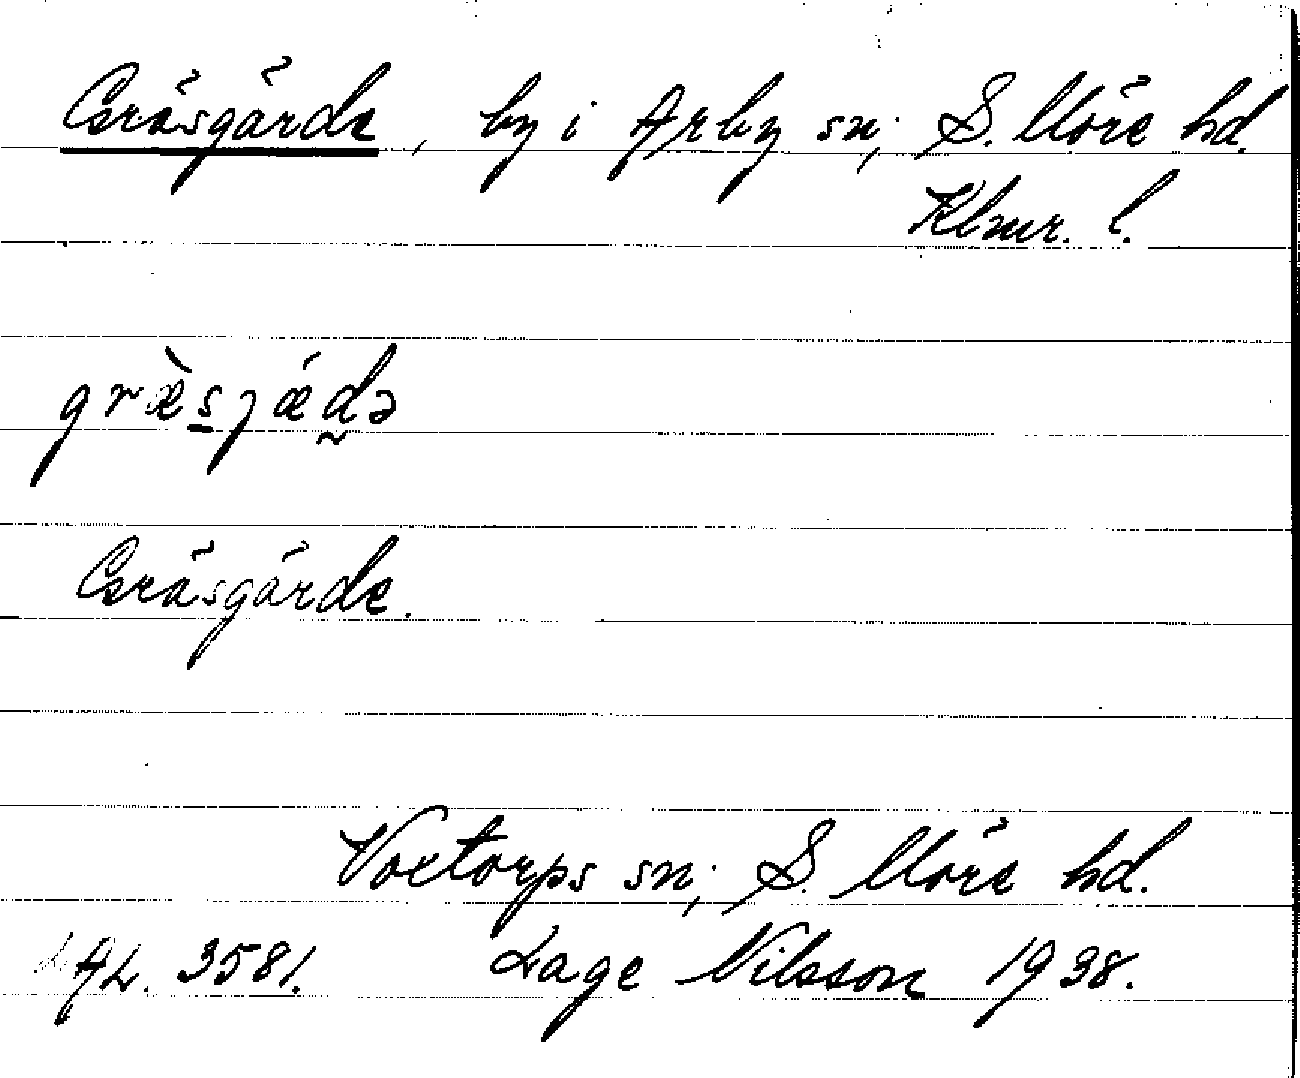 Gräsgärde, by i Arby sn; S. Möre hd.
Klmr. l.
græ̀s̲ȷǽd̰ə
Gräsgärde.
Voxtorps sn; S. Möre hd.
LAL. 3581. Lage Nilsson 1938.